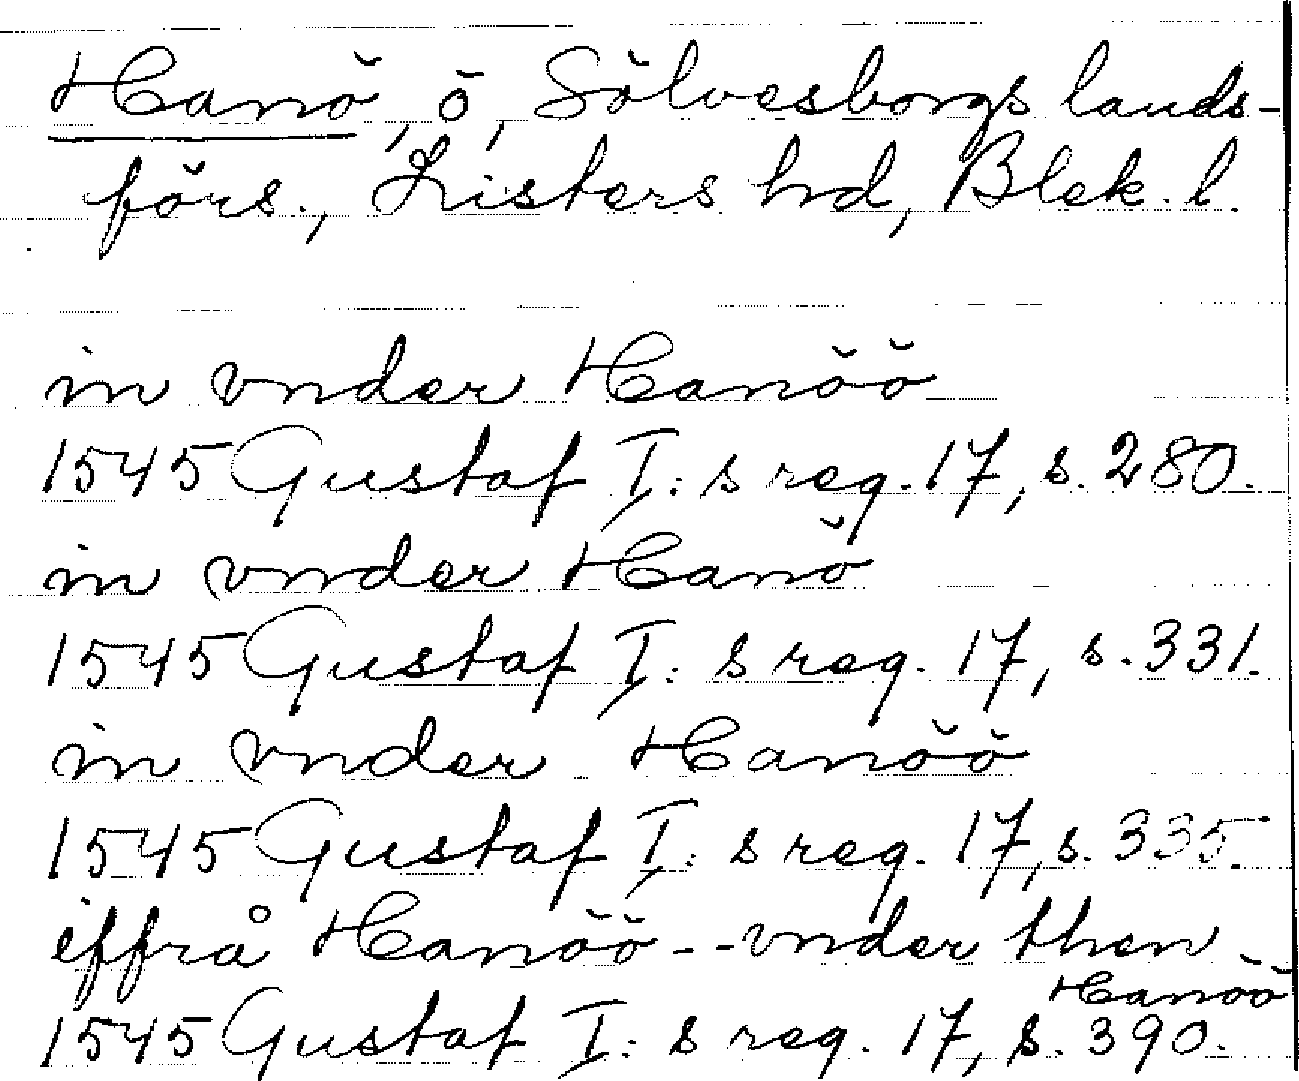 Hanö, ö, Sölvesborgs lands-
förs., Listers hd, Blek. l.
in vnder Hanöö
1545 Gustaf I: s reg. 17, s. 280.
in vnder Hanö
1545 Gustaf I: s reg. 17, s. 331.
in vnder Hanöö
1545 Gustaf I: s reg. 17, s. 335.
iffrå Hanöö -- vnder then
Hanöö
1545 Gustaf I: s reg. 17, s. 390.